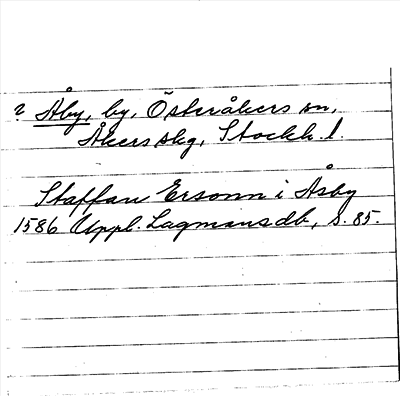 ? Åby, by, Österåkers sn,
Åkers skg, Stockh. l.
Staffan Ersonn i Åsby
1586 Uppl. Lagmansdb, s. 85.